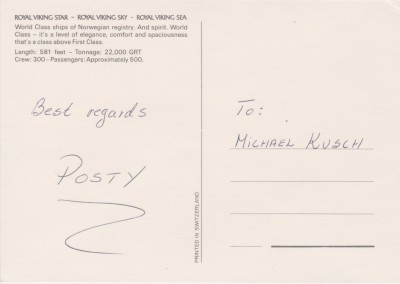 ROYAL VIKING STAR - ROYAL VIKING SKY - ROYAL VIKING SEA
World Class ships of Norwegian registry. And spirit. World
Class – it's a level of elegance, comfort and spaciousness
that's a class above First Class.
Length: 581 feet - Tonnage: 22,000 GRT
Crew: 300 - Passengers: Approximately 500.
Best regards
POSTY
To:
MICHAEL KUSCH
PRINTED IN SWITZERLAND